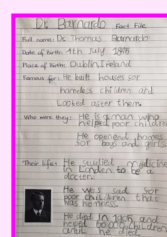 Dr Barnardo Fact File
Full name: Dr Thomas Barnardo
Date of Birth: 4th July
Place of Birth: Dublin, Ireland
Famous for: He built houses for
homeless children and
Looked after them.
Who were they: He is a man who
helped poor children
He opened homes
for boys and girls
Their life: He studied medicine
in London to be a
doctor.
He was sad for
poor children that
had homeless.
He died in 1905 and
children
he died.